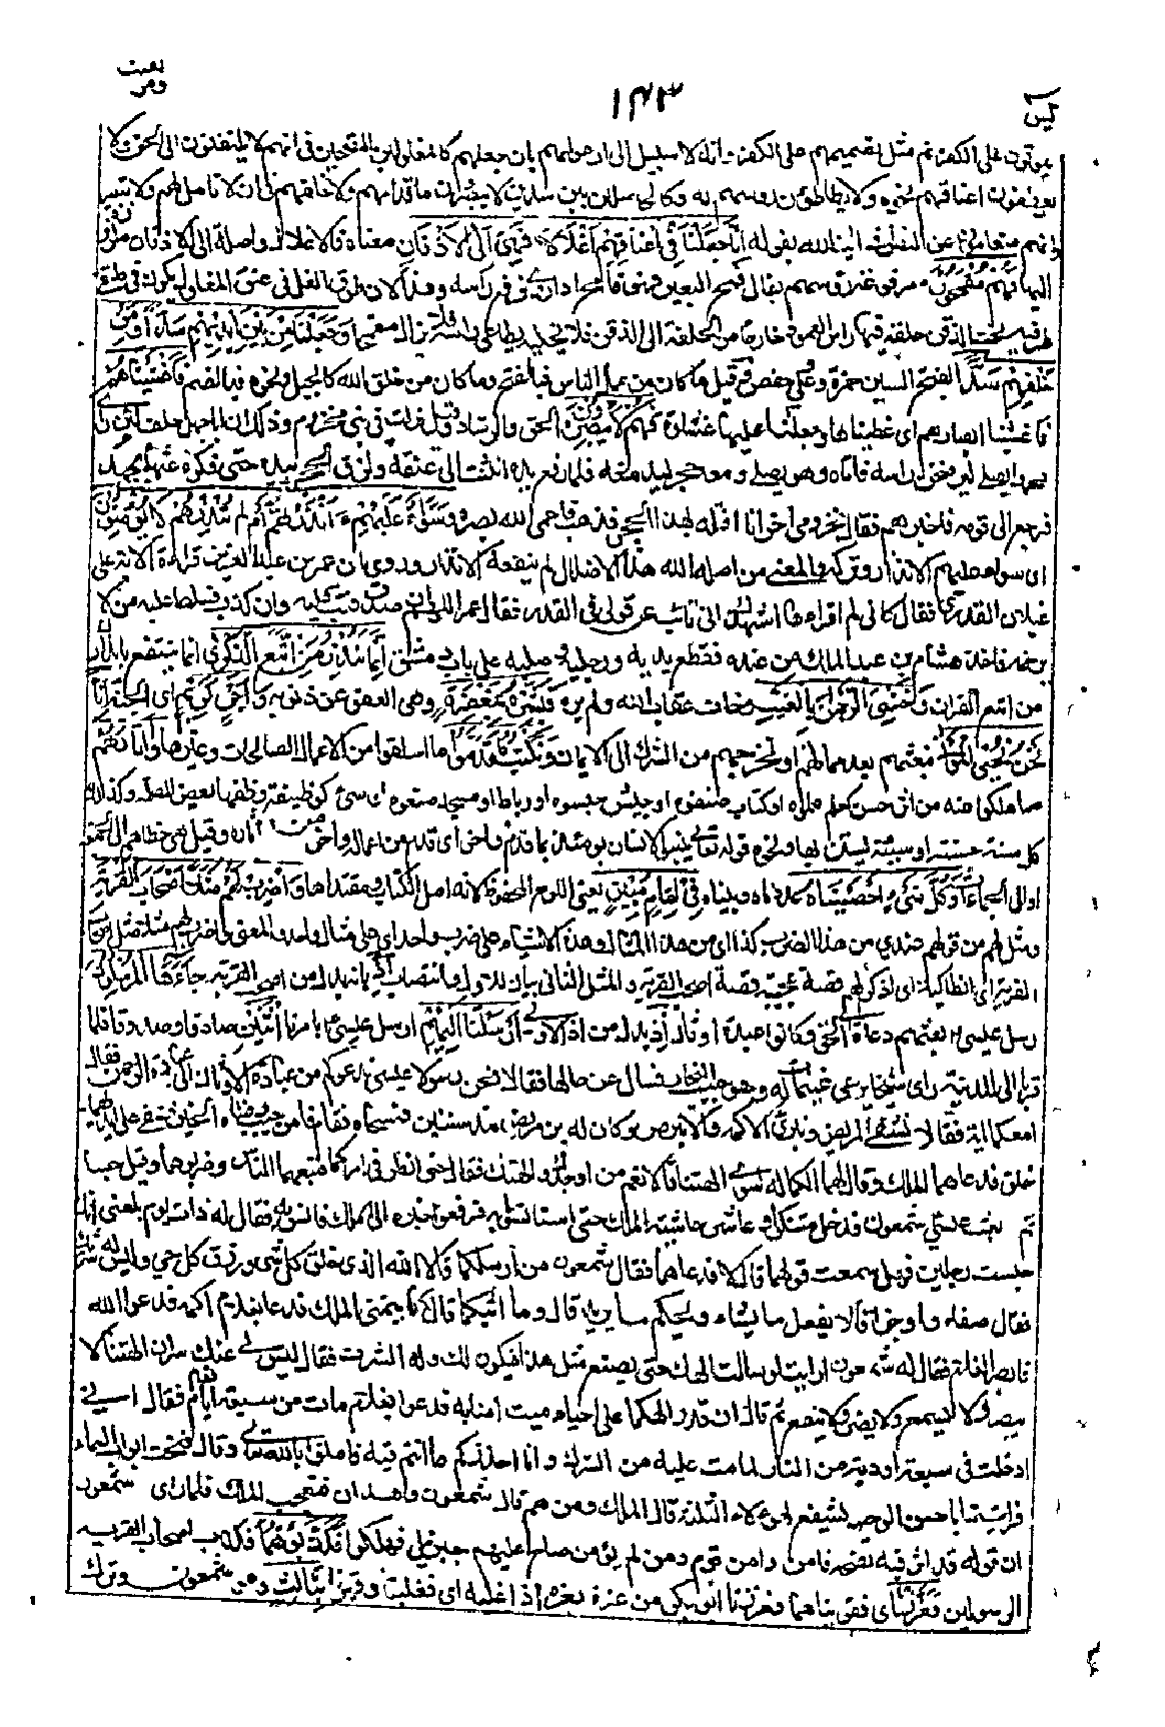 ومن يقنت
١٤٣
يس
يموتون على الكفر ثم مثل تصميمهم على الكفر وانه لا سبيل الى ارعوائهم بان جعلهم كالمغلولين المقمحين في انهم لا يلتفتون الى الحق ولا
يعطفون اعناقهم نحوه ولا يطاطؤن رؤسهم له وكالحاصلين بين سدين لا يبصرون ما قدامهم ولا خلفهم في ان لا تامل لهم ولا تبصر
وانهم متعامون عن النظر في آيات الله بقوله انا جعلنا في اعناقهم اغلالا فهي الى الاذقان معناه فالاغلال واصلة الى الاذقان ملزوزة
اليها فهم مقمحون مرفوعة رؤسهم يقال قمح البعير فهو قامح اذا روي فرفع راسه وهذا لان طوق الغل في عنق المغلول يكون في ملتقى
طرفيه تحت الذقن حلقة فيها راس العمود خارجا من الحلقة الى الذقن فلا يخليه يطاطئ راسه فلا يزال مقمحا وجعلنا من بين ايديهم سدا ومن
خلفهم سدا بفتح السين حمزة وعلي وحفص وقيل ما كان من عمل الناس فبالفتح وما كان من خلق الله كالجبل ونحوه فبالضم فاغشيناهم
فاغشينا ابصارهم اي غطيناها وجعلنا عليها غشاوة فهم لا يبصرون الحق والرشاد وقيل نزلت في بني مخزوم وذلك ان ابا جهل حلف لئن راى
محمدا يصلي ليرضخن راسه فاتاه وهو يصلي ومعه حجر ليدمغه فلما رفع يده انثنت الى عنقه ولزق الحجر بيده حتى فكوه عنها بجهد
فرجع الى قومه فاخبرهم فقال مخزومي آخر انا اقتله بهذا الحجر فذهب فاعمى الله بصره وسواء عليهم ءانذرتهم ام لم تنذرهم لا يؤمنون
اي سواء عليهم الانذار وتركه والمعنى من اضله الله هذا الاضلال لم ينفعه الانذار وروي ان عمر بن عبد العزيز قرأ هذه الآية على
غيلان القدري فقال كاني لم اقراها اشهدك اني تائب عن قولي في القدر فقال عمر اللهم ان صدق فتب عليه وان كذب فسلط عليه من لا
يرحمه فاخذه هشام بن عبد الملك من عنده فقطع يديه ورجليه وصلبه على باب دمشق انما تنذر من اتبع الذكر اي انما ينتفع بانذارك
من اتبع القران وخشي الرحمن بالغيب وخاف عقاب الله ولم يره فبشره بمغفرة وهي العفو عن ذنوبه واجر كريم اي الجنة انا
نحن نحي الموتى نبعثهم بعد مماتهم او نخرجهم من الشرك الى الايمان ونكتب ما قدموا ما اسلفوا من الاعمال الصالحات وغيرها وآثارهم
ما هلكوا عنه من اثر حسن كعلم علموه او كتاب صنفوه او حبيس حبسوه او رباط او مسجد صنعوه او سيئ كوظيفة وظفها بعض الظلمة وكذلك
كل سنة حسنة او سيئة يستن بها ونحوه قوله تعالى ينبؤ الانسان يومئذ بما قدم واخر اي قدم من اعماله واخر من آثاره وقيل هي خطاهم الى الجمعة
او الى الجماعة وكل شيء احصيناه عددناه وبيناه في امام مبين يعني اللوح المحفوظ لانه اصل الكتب ومقتداها واضرب لهم مثلا اصحاب القرية
ومثل لهم من قولهم عندي من هذا الضرب كذا اي من هذا المثال وهذه الاشياء على ضرب واحد اي على مثال واحد والمعنى واضرب لهم مثلا مثل اصحاب
القرية اي انطاكية اي اذكر لهم قصة عجيبة قصة اصحاب القرية والمثل الثاني بيان للاول وانتصاب اذ بانه بدل من اصحاب القرية جاءها المرسلون
رسل عيسى بعثهم دعاة الى الحق وكانوا عبدة اوثان اذ بدل من اذ الاولى ارسلنا اليهم ارسل عيسى بامرنا اثنين صادقا وصدوقا فلما
قربا الى المدينة رايا شيخا يرعى غنيمات له وهو حبيب النجار فسال عن حالهما فقالا نحن رسولا عيسى ندعوكم من عبادة الاوثان الى عبادة الرحمن فقال
امعكما آية فقالا نشفي المريض ونبرئ الاكمه والابرص وكان له ابن مريض مدة سنتين فمسحاه فقام فامن حبيب وفشا الخبر فشفي على ايديهما
خلق فدعاهما الملك وقال لهما الكما اله سوى الهتنا قالا نعم من اوجدك والهتك فقال حتى انظر في امركما فتبعهما الناس وضربوهما وقيل حبسا
ثم بعث عيسى شمعون فدخل متنكرا وعاشر حاشية الملك حتى استانسوا به فرفعوا خبره الى الملك فانس به فقال له ذات يوم بلغني انك
حبست رجلين فهل سمعت قولهما قال لا فدعاهما فقال شمعون من ارسلكما قالا الله الذي خلق كل شيء ورزق كل حي وليس له شريك
فقال صفاه واوجزا قالا يفعل ما يشاء ويحكم ما يريد قال وما ايتكما قالا ما يتمنى الملك فدعا بغلام اكمه فدعوا الله
فابصر الغلام فقال له شمعون ارايت لو سالت الهك حتى يصنع مثل هذا فيكون لك وله الشرف فقال ليس لي عنك سر ان الهتنا لا
يبصر ولا يسمع ولا يضر ولا ينفع ثم قال ان قدر الهكما على احياء ميت امنا به فدعوا بغلام مات من سبعة ايام فقام فقال اني
ادخلت في سبعة اودية من النار لما مت عليه من الشرك وانا احذركم ما انتم فيه فامنوا بالله تعالى وقال فتحت ابواب السماء
فرايت شابا حسن الوجه يشفع لهؤلاء الثلثة قال الملك ومن هم قال شمعون وهذان فتعجب الملك فلما راى شمعون
ان قوله قد اثر فيه نصحه فامن وامن قوم ومن لم يؤمن صاح عليهم جبرئيل فهلكوا فكذبوهما فكذب اصحاب القرية
الرسولين فعززنا اي فقويناهما فعززنا ابو بكر من عزه يعزه اذا غلبه اي فغلبنا وقهرنا بثالث وهو شمعون وترك